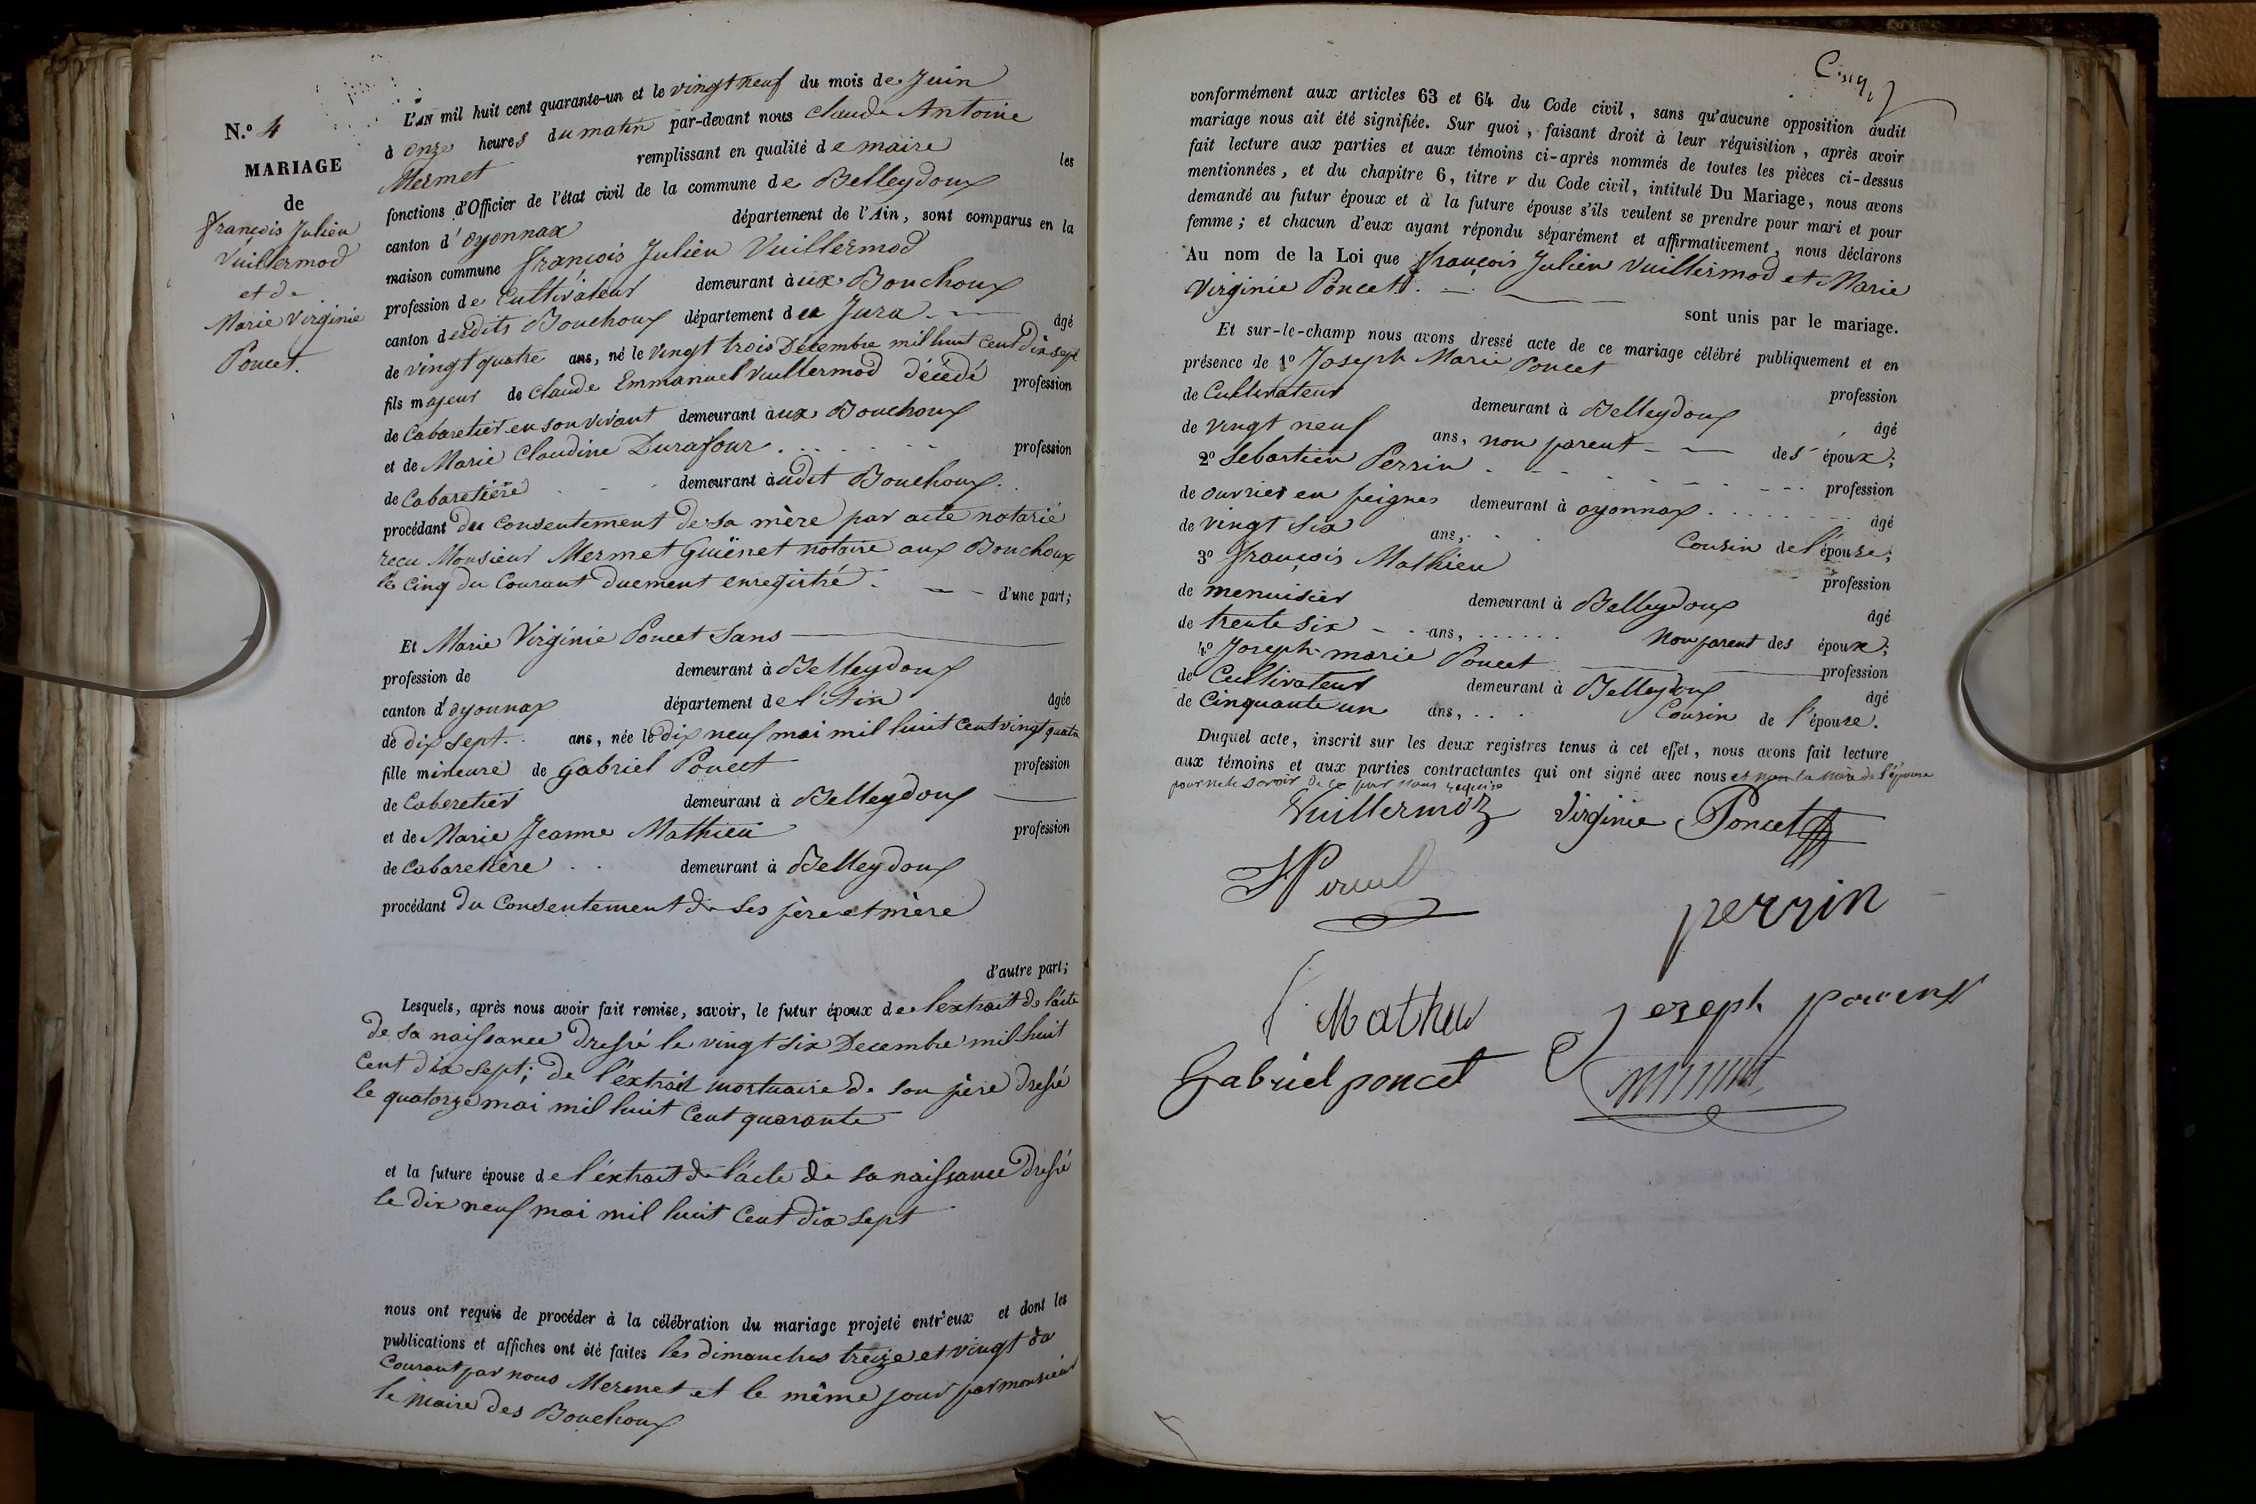 N.o 4
MARIAGE
de
François Julien
Vuillermod
et de
Marie Virginie
Poncet.
L'AN mil huit cent quarante-un et le vingt neuf du mois de Juin
à onze heures du matin par-devant nous Claude Antoine
Mermet remplissant en qualité de maire les
fonctions d'Officier de l'état civil de la commune de Belleydoux
canton d'oyonnax département de l'Ain, sont comparus en la
maison commune François Julien Vuillermod
profession de Cultivateur demeurant aux Bouchoux
canton desdits Bouchoux département du Jura âgé
de vingt quatre ans, né le vingt trois Decembre mil huit Cent dix sept
fils majeur de Claude Emmanuel Vuillermod décédé profession
de Cabaretier en son vivant demeurant aux Bouchoux
et de Marie Claudine Durafour profession
de Cabaretière demeurant audit Bouchoux
procédant du Consentement de sa mère par acte notarié
reçu Monsieur Mermet Guënet notaire aux Bouchoux
le Cinq du Courant duement enregistré. d'une part;
Et Marie Virginie Poncet Sans
profession de demeurant à Belleydoux
canton d'oyonnax département de l'Ain âgée
de dix sept ans, née le dix neuf mai mil huit Cent vingt quatre
fille mineure de Gabriel Poncet profession
de Caberetier demeurant à Belleydoux
et de Marie Jeanne Mathieu profession
de Cabaretière demeurant à Belleydoux
procédant du Consentement de Ses père et mère
d'autre part;
Lesquels, après nous avoir fait remise, savoir, le futur époux de l'extrait de l'acte
de sa naissance dressé le vingt six Decembre mil huit
Cent dix sept; de l'extrait mortuaire de son père dressé
le quatorze mai mil huit Cent quarante
et la future épouse de l'éxtrait de l'acte de sa naissance dressé
le dix neuf mai mil huit Cent dix sept
nous ont requis de procéder à la célébration du mariage projeté entr'eux et dont les
publications et affiches ont été faites les dimanches treize et vingt du
Courant par nous Mermet et le même jour par monsieur
le Maire des Bouchoux
Cinq
conformément aux articles 63 et 64 du Code civil, sans qu'aucune opposition audit
mariage nous ait été signifiée. Sur quoi, faisant droit à leur réquisition, après avoir
fait lecture aux parties et aux témoins ci-après nommés de toutes les pièces ci-dessus
mentionnées, et du chapitre 6, titre v du Code civil, intitulé Du Mariage, nous avons
demandé au futur époux et à la future épouse s'ils veulent se prendre pour mari et pour
femme; et chacun d'eux ayant répondu séparément et affirmativement, nous déclarons
Au nom de la Loi que François Julien Vuillermod et Marie
Virginie Poncet
sont unis par le mariage.
Et sur-le-champ nous avons dressé acte de ce mariage célébré publiquement et en
présence de 1o Joseph Marie Poncet
de Cultivateur demeurant à Belleydoux profession
de vingt neuf ans, non parent des époux; âgé
2o Sebastien Perrin
de ouvrier en peignes demeurant à oyonnax profession
de vingt Six ans, Cousin de l'épouse; âgé
3o François Mathieu
de menuisier demeurant à Belleydoux profession
de trente six ans, Non parent des époux; âgé
4o Joseph marie Poncet profession
de Cultivateur demeurant à Belleydoux
de Cinquante un ans, Cousin de l'épouse. âgé
Duquel acte, inscrit sur les deux registres tenus à cet effet, nous avons fait lecture
aux témoins et aux parties contractantes qui ont signé avec nous et non la mère de l'épouse
pour ne le savoir de ce par nous requise
Vuillermoz Virginie Poncet
perrin
Mathieu Joseph
Gabriel poncet